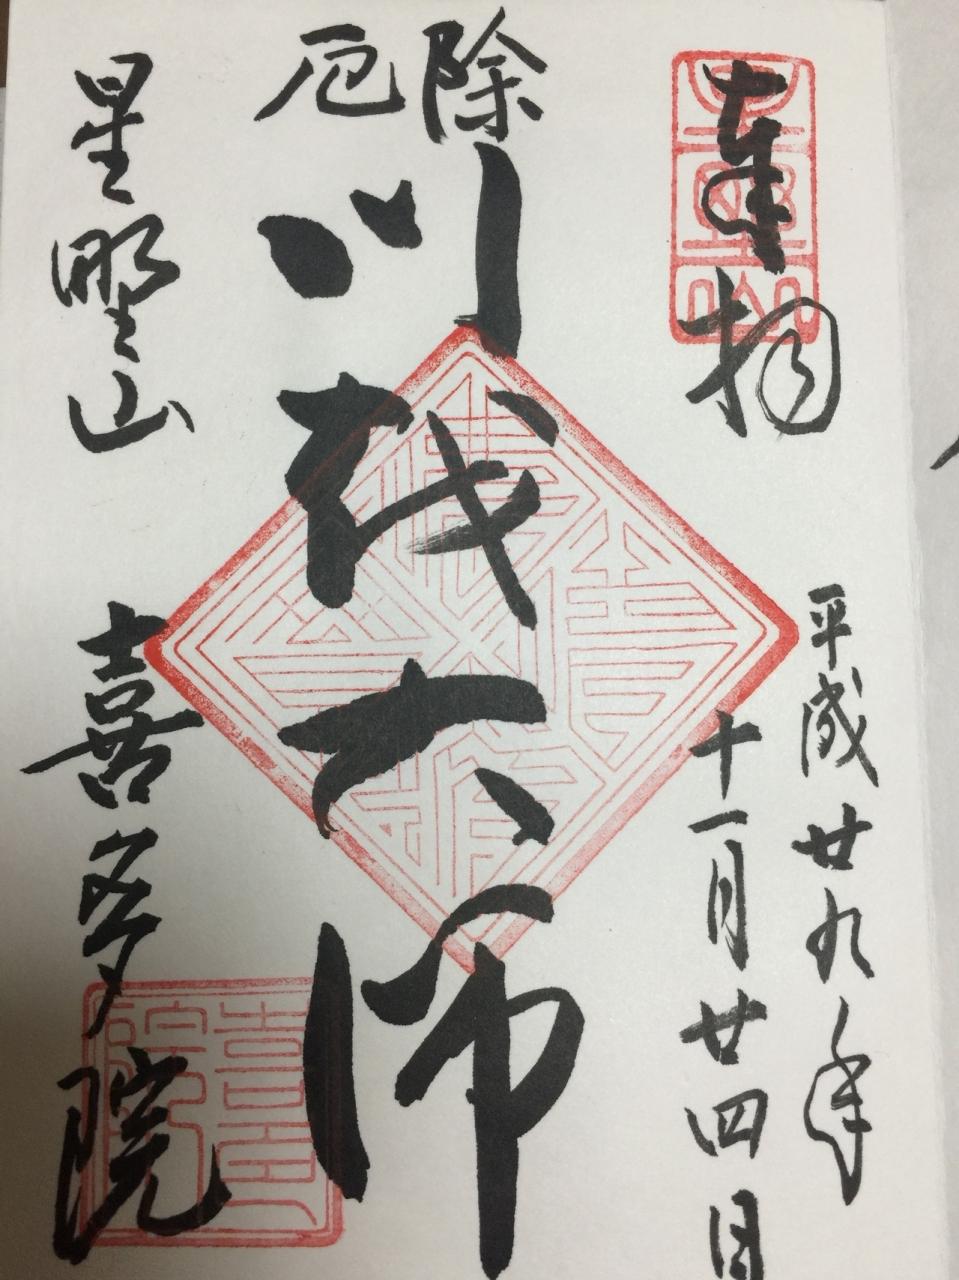 奉拝
平成廿九年
十一月廿四日
厄除
川越大師
星野山
喜多院
喜多院